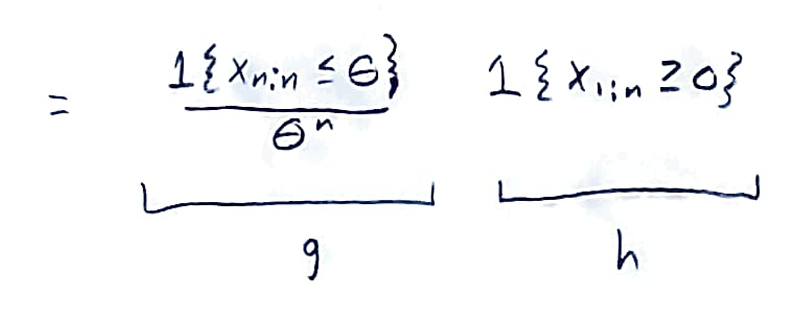 = 1{x_{n:n} ≤ θ} / θ^n 1{x_{1:n} ≥ 0}
g h